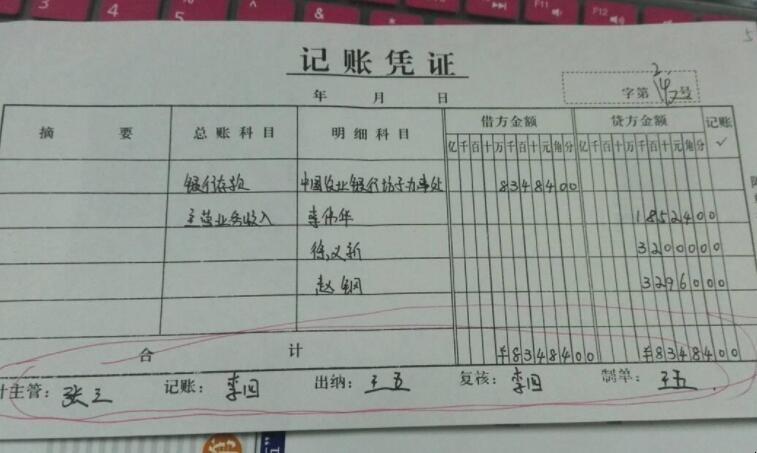 记账凭证
年 月 日 字第 号
摘要 总账科目 明细科目 借方金额 贷方金额 记账
亿千百十万千百十元角分 亿千百十万千百十元角分 ✓
银行存款 中国农业银行坊子办事处 8348400
主营业务收入 李伟华 1852400
徐义新 3200000
赵钢 3296000
合计 ¥8348400 ¥8348400
计主管: 张三 记账: 李四 出纳: 王五 复核: 李四 制单: 王五